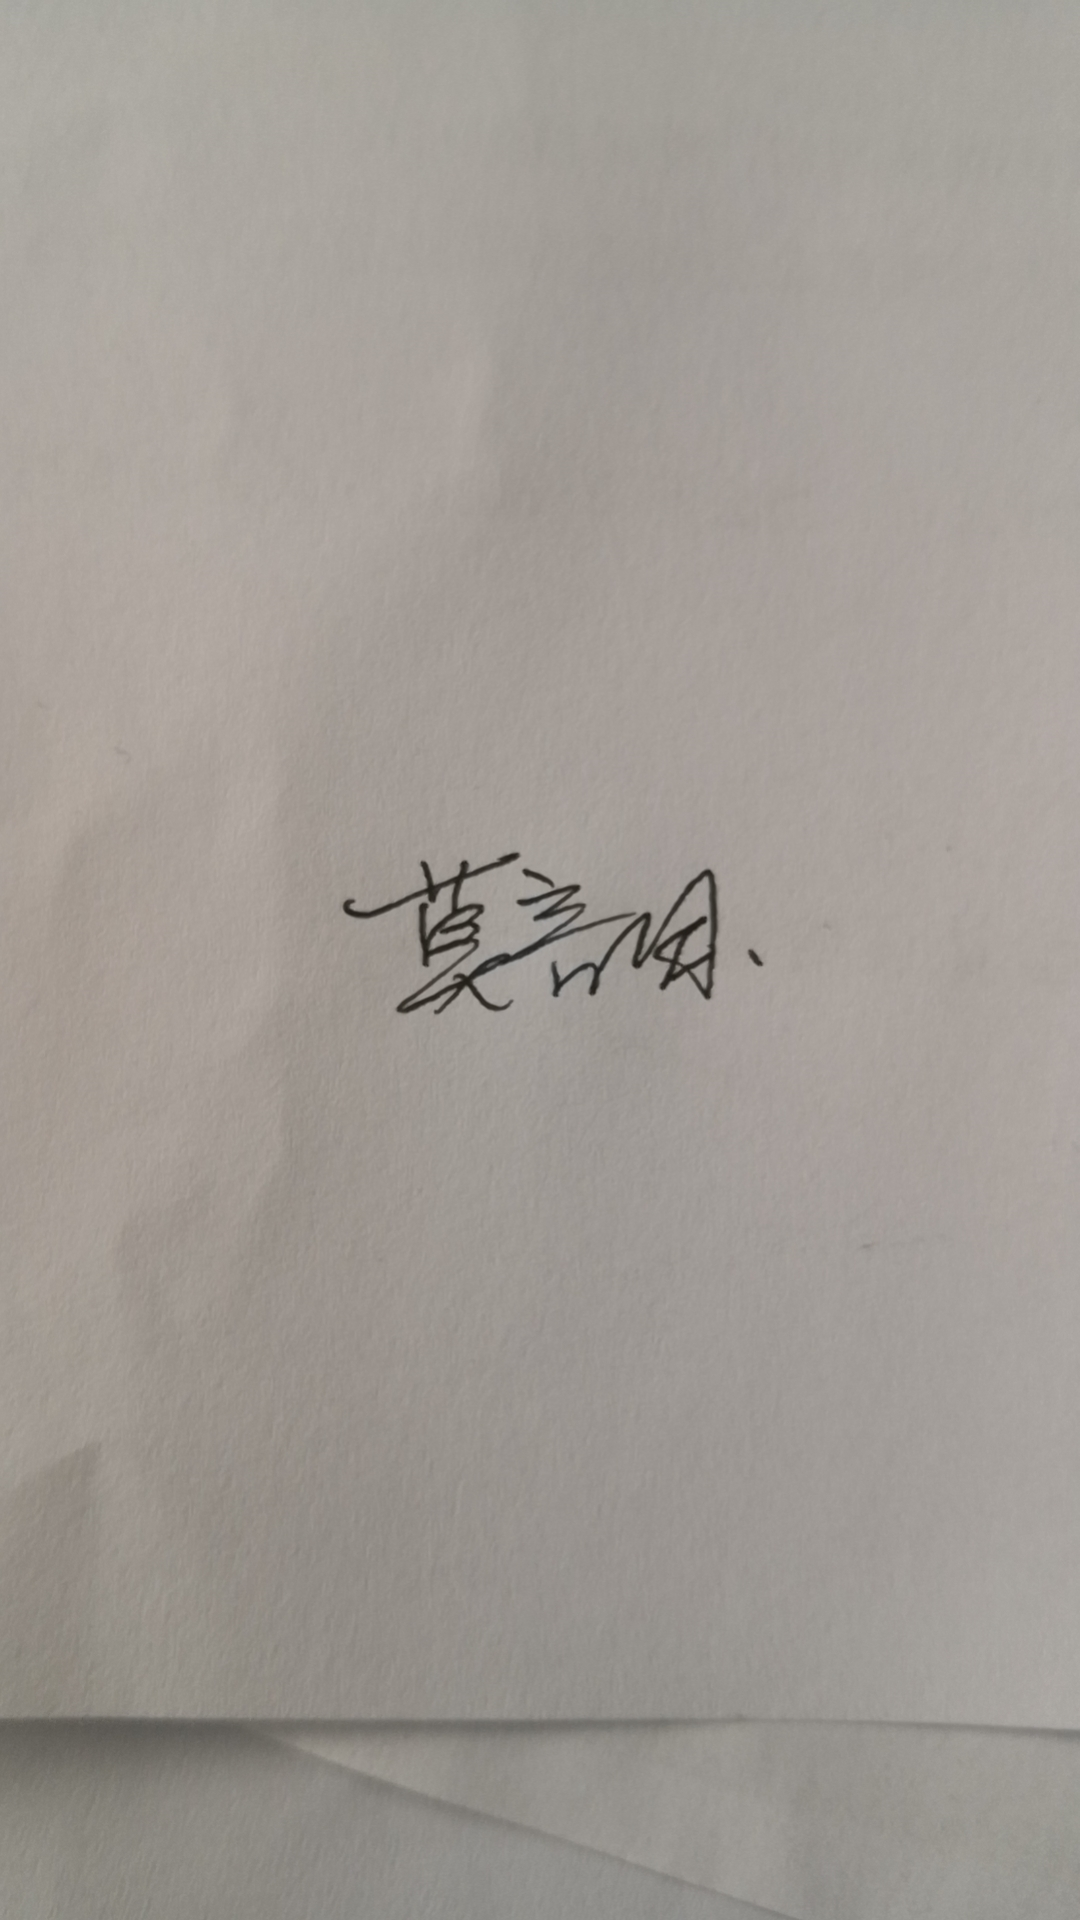 莫言明